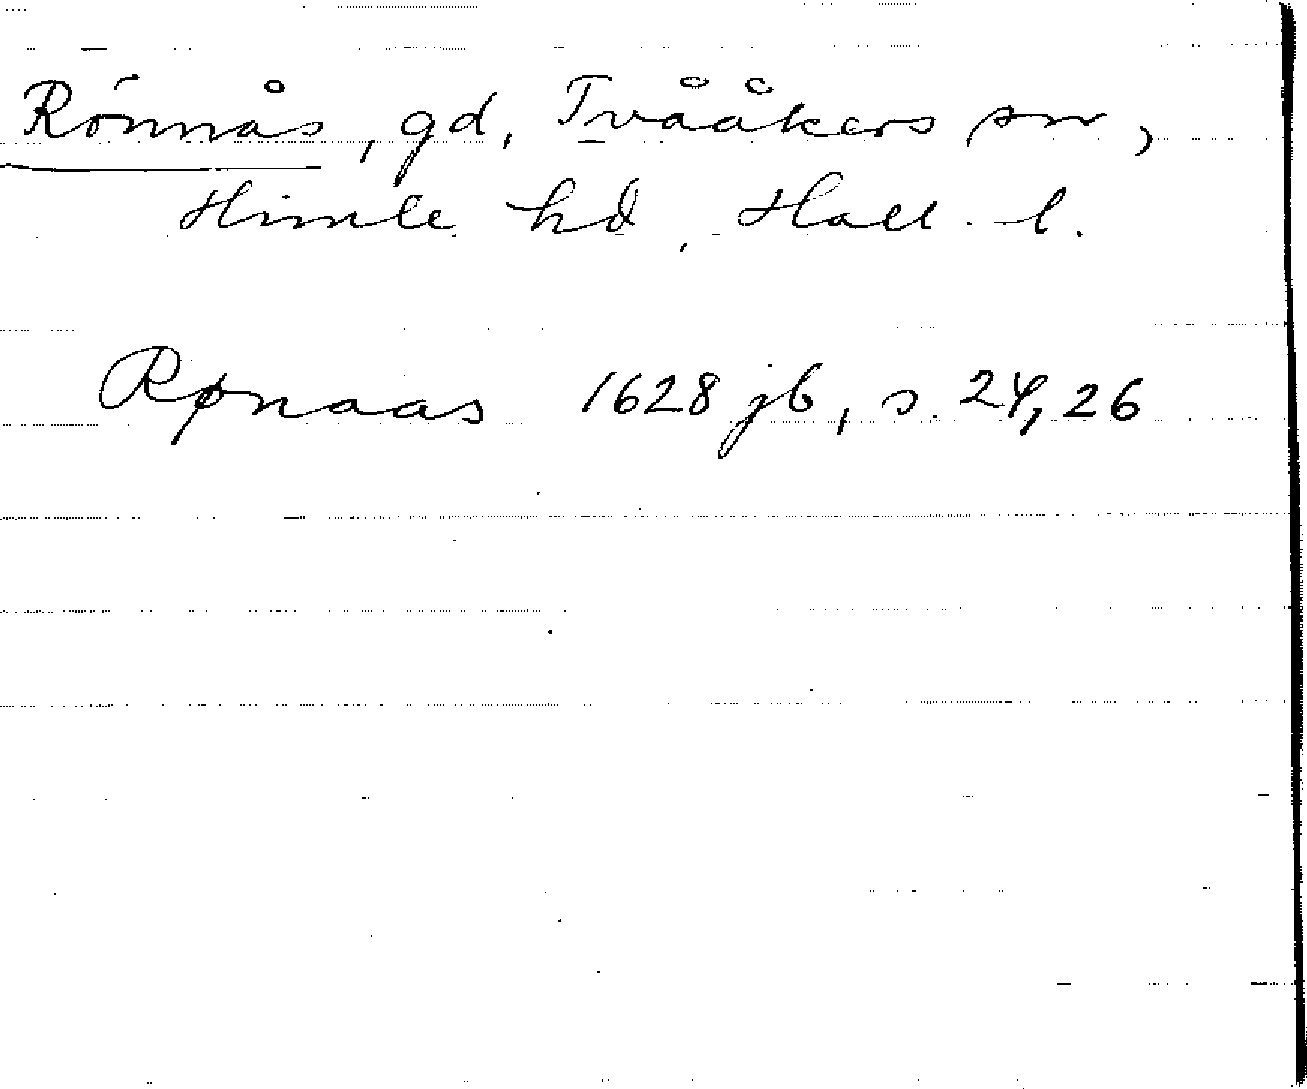 Rönnås, gd, Tvååkers sn,
Himle hd, Hall. l.
Rønaas 1628 jb, s. 24, 26